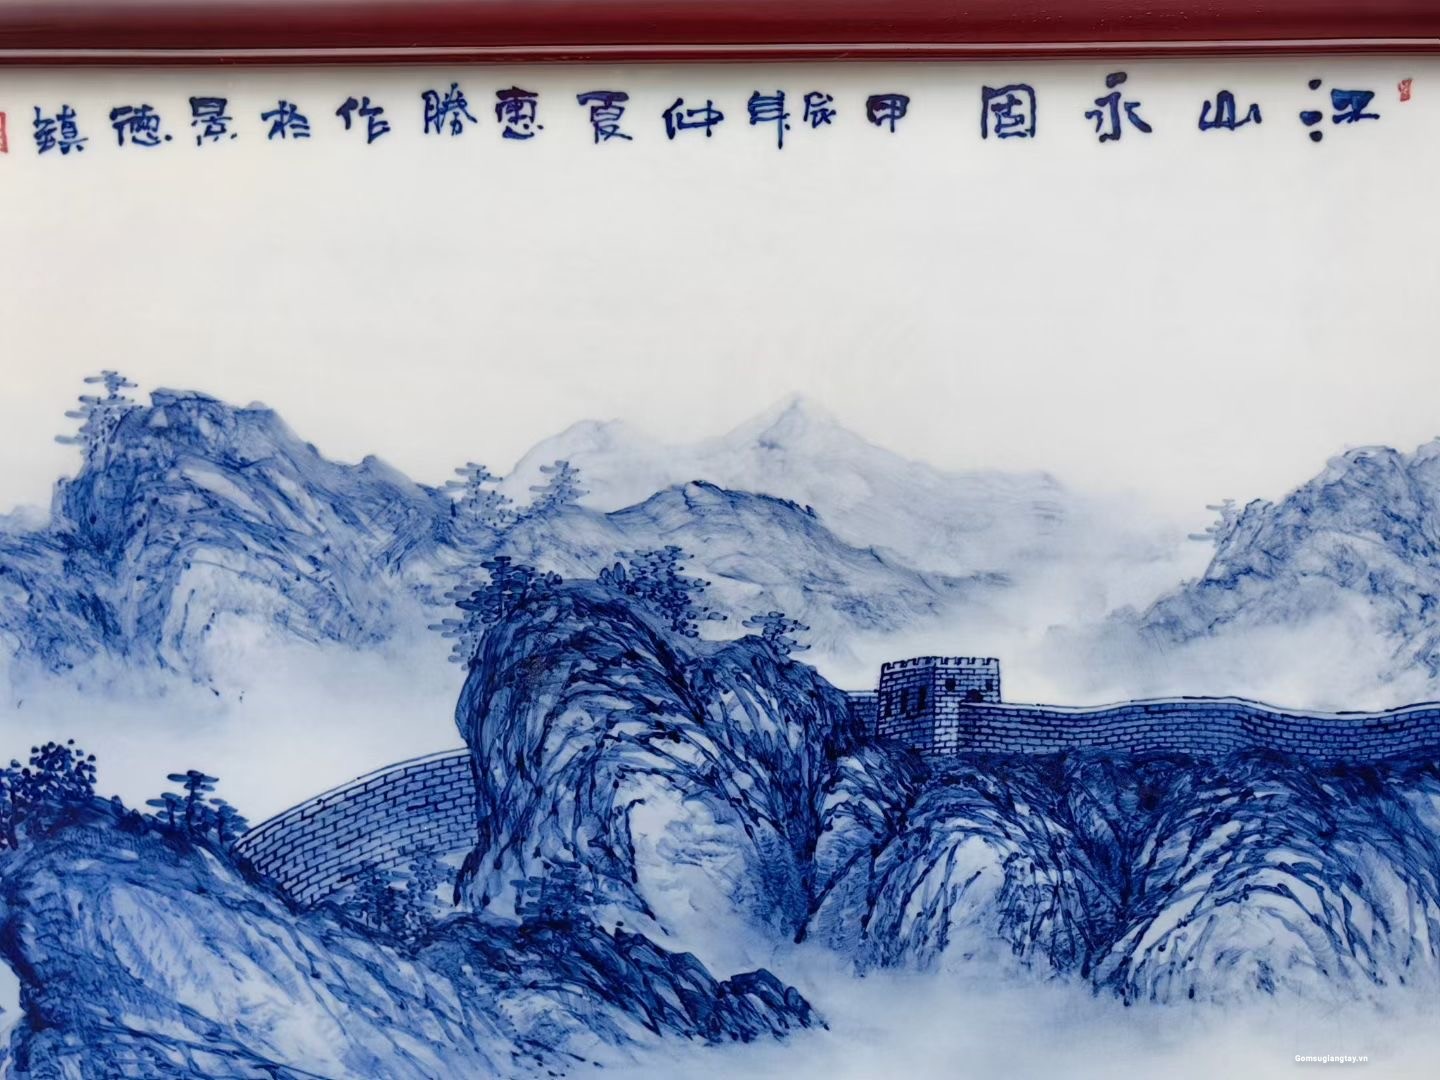 江山永固 甲辰年仲夏惠勝作於景德鎮
Gomsugiangtay.vn